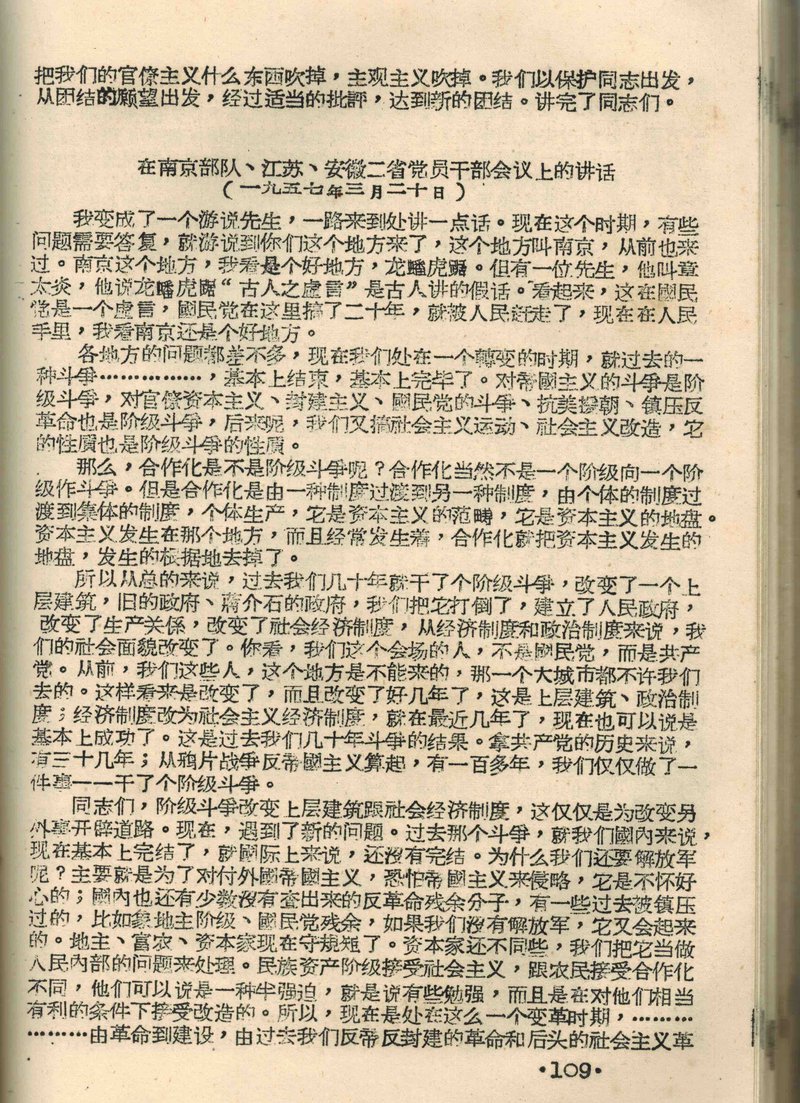 把我们的官僚主义什么东西吹掉，主观主义吹掉。我们以保护同志出发，
从团结的愿望出发，经过适当的批評，达到新的团结。讲完了同志们。
在南京部队、江苏、安徽二省党员干部会议上的讲话
（一九五七年三月二十日）
我变成了一个游说先生，一路来到处讲一点话。现在这个时期，有些
问题需要答复，就游说到你们这个地方来了，这个地方叫南京，从前也来
过。南京这个地方，我看是个好地方，龙蟠虎踞。但有一位先生，他叫章
太炎，他说龙蟠虎踞“古人之虚言”是古人讲的假话。看起来，这在國民
党是一个虚言，國民党在这里搞了二十年，就被人民赶走了，现在在人民
手里，我看南京还是个好地方。
各地方的问题都差不多，现在我们处在一个轉变的时期，就过去的一
种斗爭……………，基本上结束，基本上完毕了。对帝國主义的斗爭是阶
级斗爭，对官僚资本主义、封建主义、國民党的斗爭、抗美援朝、镇压反
革命也是阶级斗爭，后来呢，我们又搞社会主义运动、社会主义改造，它
的性质也是阶级斗爭的性质。
那么，合作化是不是阶级斗爭呢？合作化当然不是一个阶级向一个阶
级作斗爭。但是合作化是由一种制度过渡到另一种制度，由个体的制度过
渡到集体的制度，个体生产，它是资本主义的范畴，它是资本主义的地盘。
资本主义发生在那个地方，而且经常发生着，合作化就把资本主义发生的
地盘，发生的根据地去掉了。
所以从总的来说，过去我们几十年就干了个阶级斗爭，改变了一个上
层建筑，旧的政府、蔣介石的政府，我们把它打倒了，建立了人民政府，
改变了生产关係，改变了社会经济制度，从经济制度和政治制度来说，我
们的社会面貌改变了。你看，我们这个会场的人，不是國民党，而是共产
党。从前，我们这些人，这个地方是不能来的，那一个大城市都不许我们
去的。这样看来是改变了，而且改变了好几年了，这是上层建筑、政治制
度；经济制度改为社会主义经济制度，就在最近几年了，现在也可以说是
基本上成功了。这是过去我们几十年斗爭的结果。拿共产党的历史来说，
有三十几年；从鸦片战爭反帝國主义算起，有一百多年，我们仅仅做了一
件事——干了个阶级斗爭。
同志们，阶级斗爭改变上层建筑跟社会经济制度，这仅仅是为改变另
外事开辟道路。现在，遇到了新的问题。过去那个斗爭，就我们國內来说，
现在基本上完结了，就國际上来说，还沒有完结。为什么我们还要解放军
呢？主要就是为了对付外國帝國主义，恐怕帝國主义来侵略，它是不怀好
心的；國內也还有少数沒有查出来的反革命残余分子，有一些过去被镇压
过的，比如象地主阶级、國民党残余，如果我们沒有解放军，它又会起来
的。地主、富农、资本家现在守规矩了。资本家还不同些，我们把它当做
人民內部的问题来处理。民族资产阶级接受社会主义，跟农民接受合作化
不同，他们可以说是一种半强迫，就是说有些勉强，而且是在对他们相当
有利的条件下接受改造的。所以，现在是处在这么一个变革时期，………
…………由革命到建设，由过去我们反帝反封建的革命和后头的社会主义革
·109·